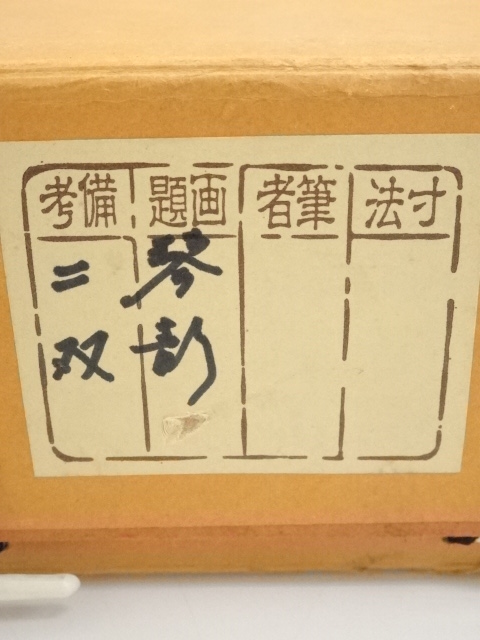 寸法
筆者
画題
琴
備考
二双